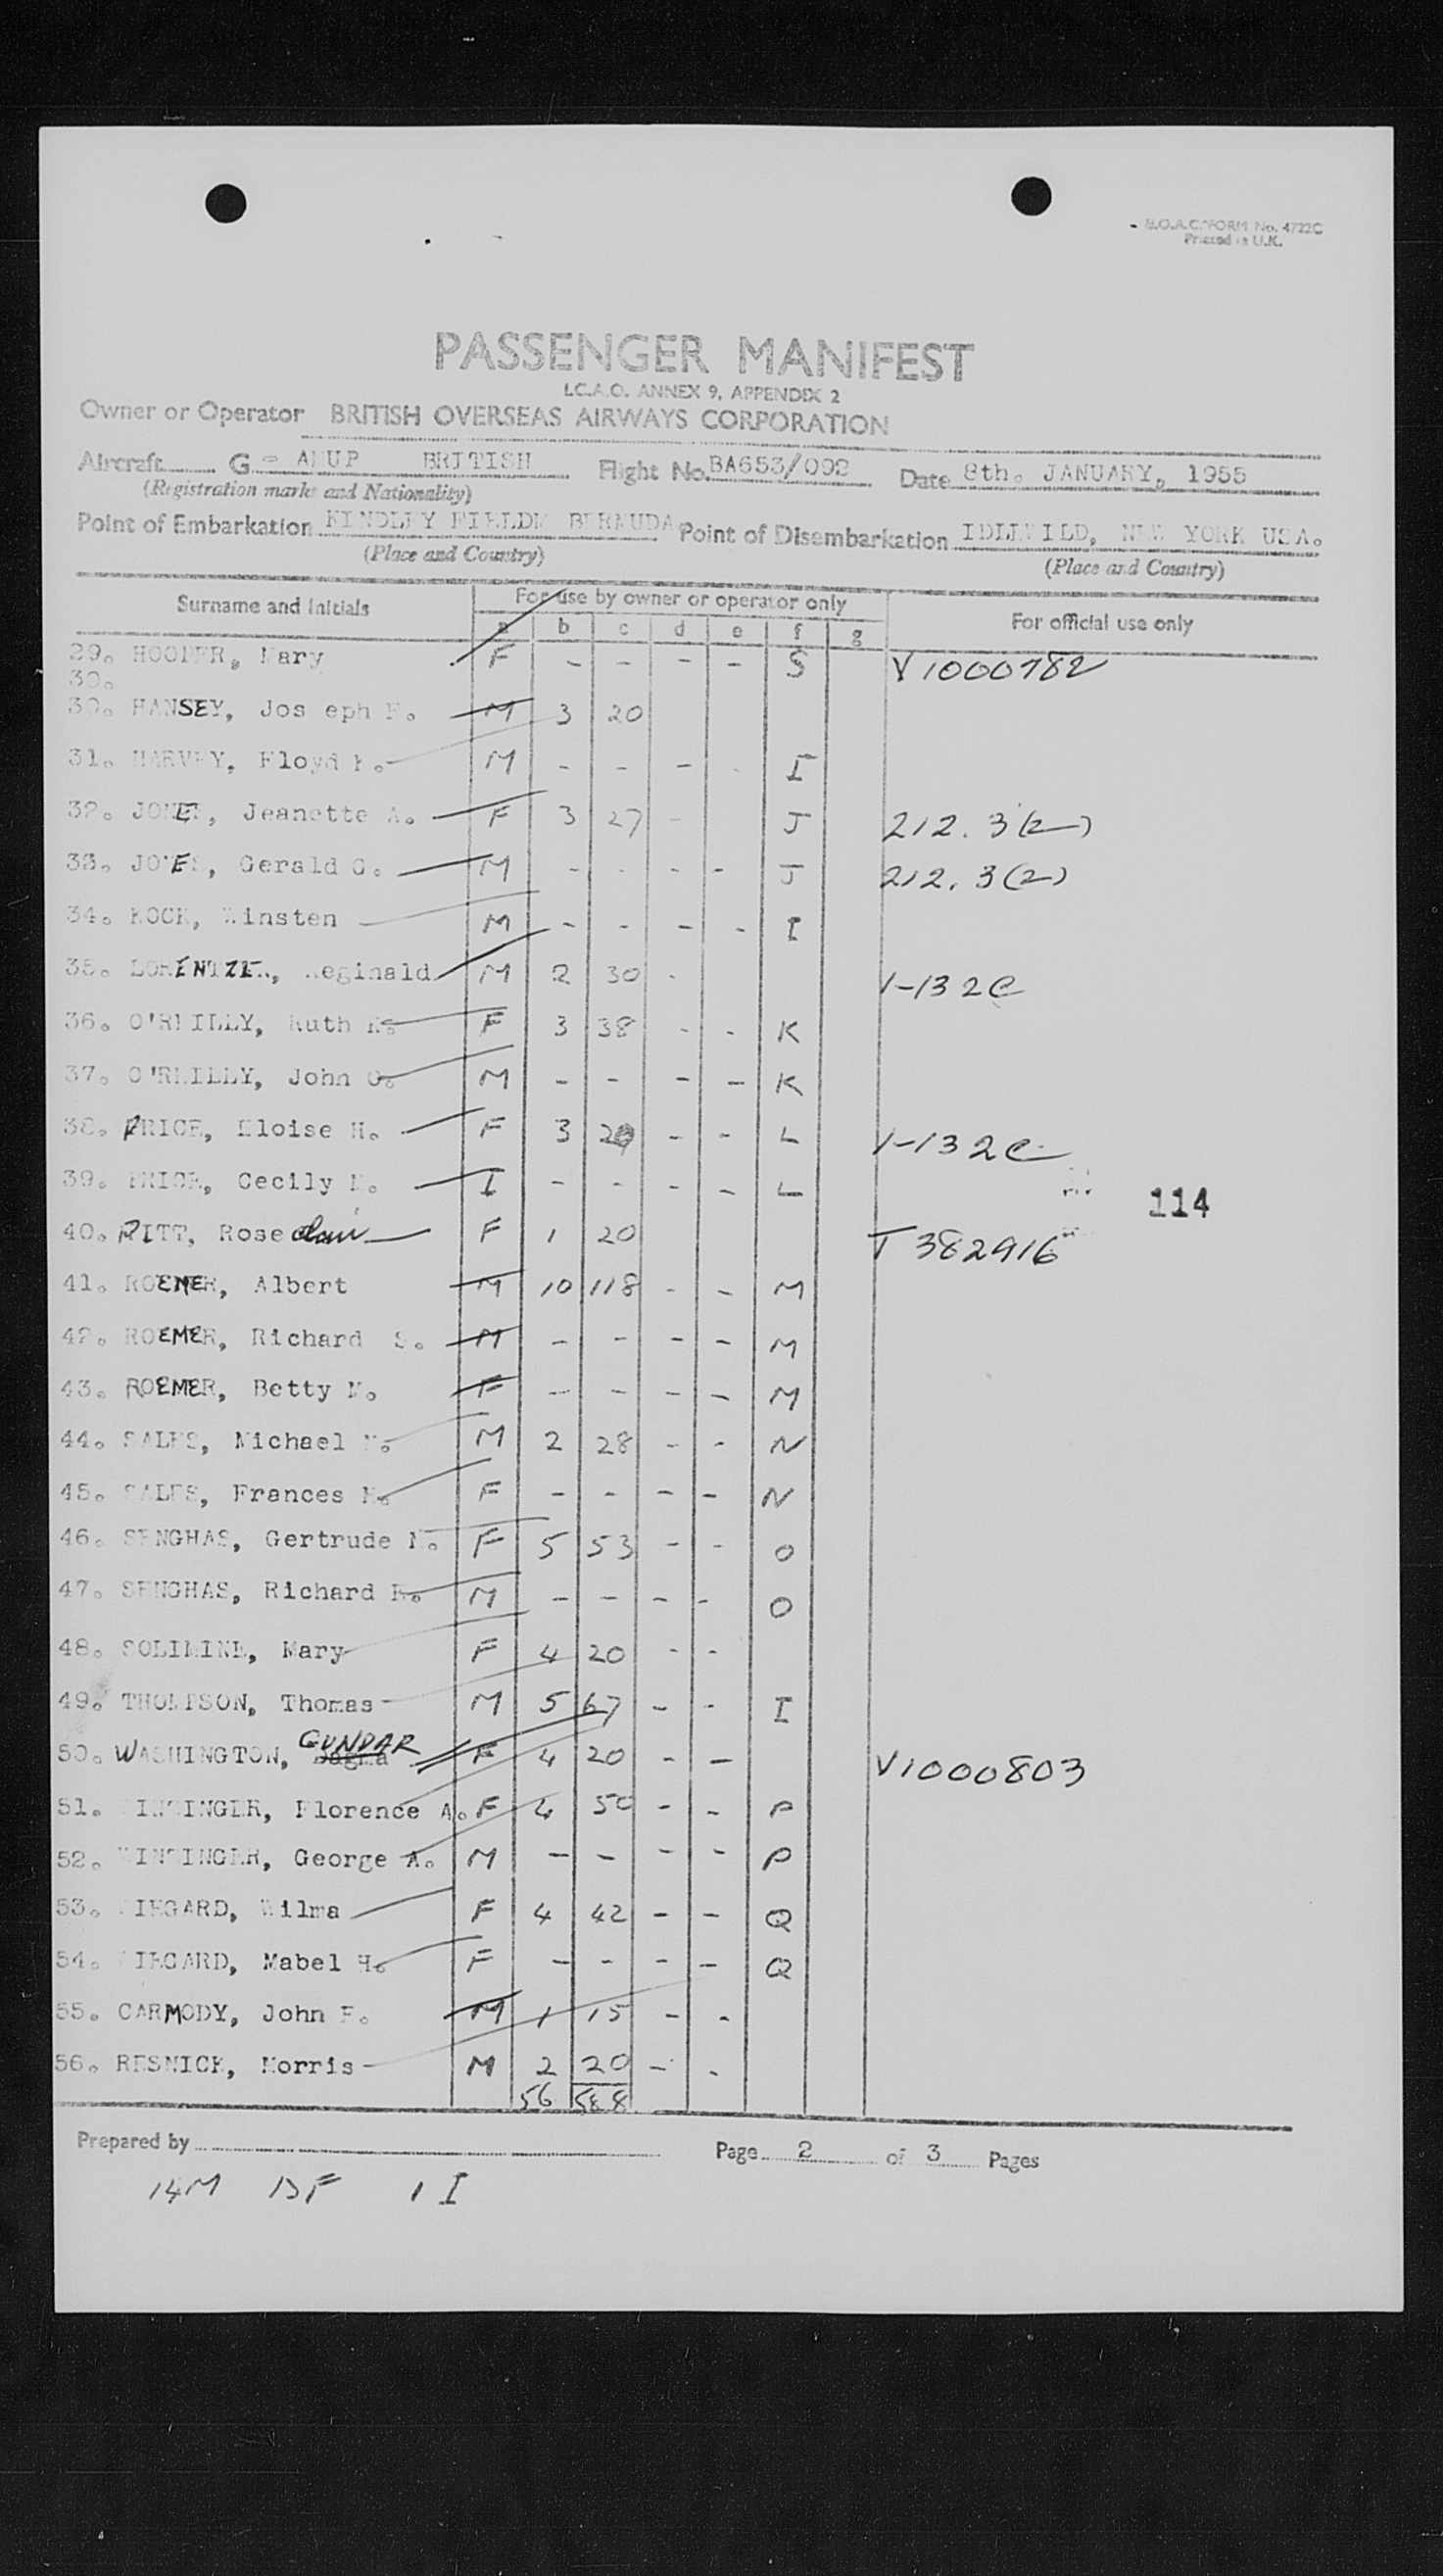 B.O.A.C. FORM No. 4722C
Printed in U.K.
PASSENGER MANIFEST
I.C.A.O. ANNEX 9, APPENDIX 2
Owner or Operator BRITISH OVERSEAS AIRWAYS CORPORATION
Aircraft G - BRITISH Flight No. BA653/092 Date 8th. JANUARY, 1955
(Registration marks and Nationality)
Point of Embarkation KINDLEY FIELD BERMUDA Point of Disembarkation IDLEWILD, NEW YORK USA.
(Place and Country) (Place and Country)
Surname and Initials For use by owner or operator only For official use only
a b c d e f g
29. Mary F - - - - S V1000782
30.
30. HANSEY, Jos eph M 3 20
31. HARVEY, Floyd M - - - - I
32. Jeanette A. F 3 27 - J 212.3(2)
33. Gerald G. M - - - - J 212.3(2)
34. KOCK, Winsten M - - - - I
35. Reginald M 2 30 - 1-132C
36. O'REILLY, Ruth F 3 38 - - K
37. O'REILLY, John G. M - - - - K
38. PRICE, Eloise H. F 3 20 - - L 1-132C
39. PRICE, Cecily I - - - - L
114
40. PITT, Rose F 1 20 T382916
41. ROEMER, Albert M 10 118 - - M
42. ROEMER, Richard S. M - - - - M
43. ROEMER, Betty M. F - - - - M
44. SALES, Michael M 2 28 - - N
45. SALES, Frances F - - - - N
46. SENGHAS, Gertrude F 5 53 - - O
47. SENGHAS, Richard M - - - - O
48. Mary F 4 20 - -
49. THOMPSON, Thomas M 5 67 - - I
GUNDAR
50. WASHINGTON, Dagma F 4 20 - - V1000803
51. Florence A. F 4 50 - - P
52. George A. M - - - - P
53. Wilma F 4 42 - - Q
54. Mabel H. F - - - - Q
55. CARMODY, John F. M 1 15 - -
56. RESNICK, Morris M 2 20 - -
56 588
Prepared by Page 2 of 3 Pages
14M 13F 1 I